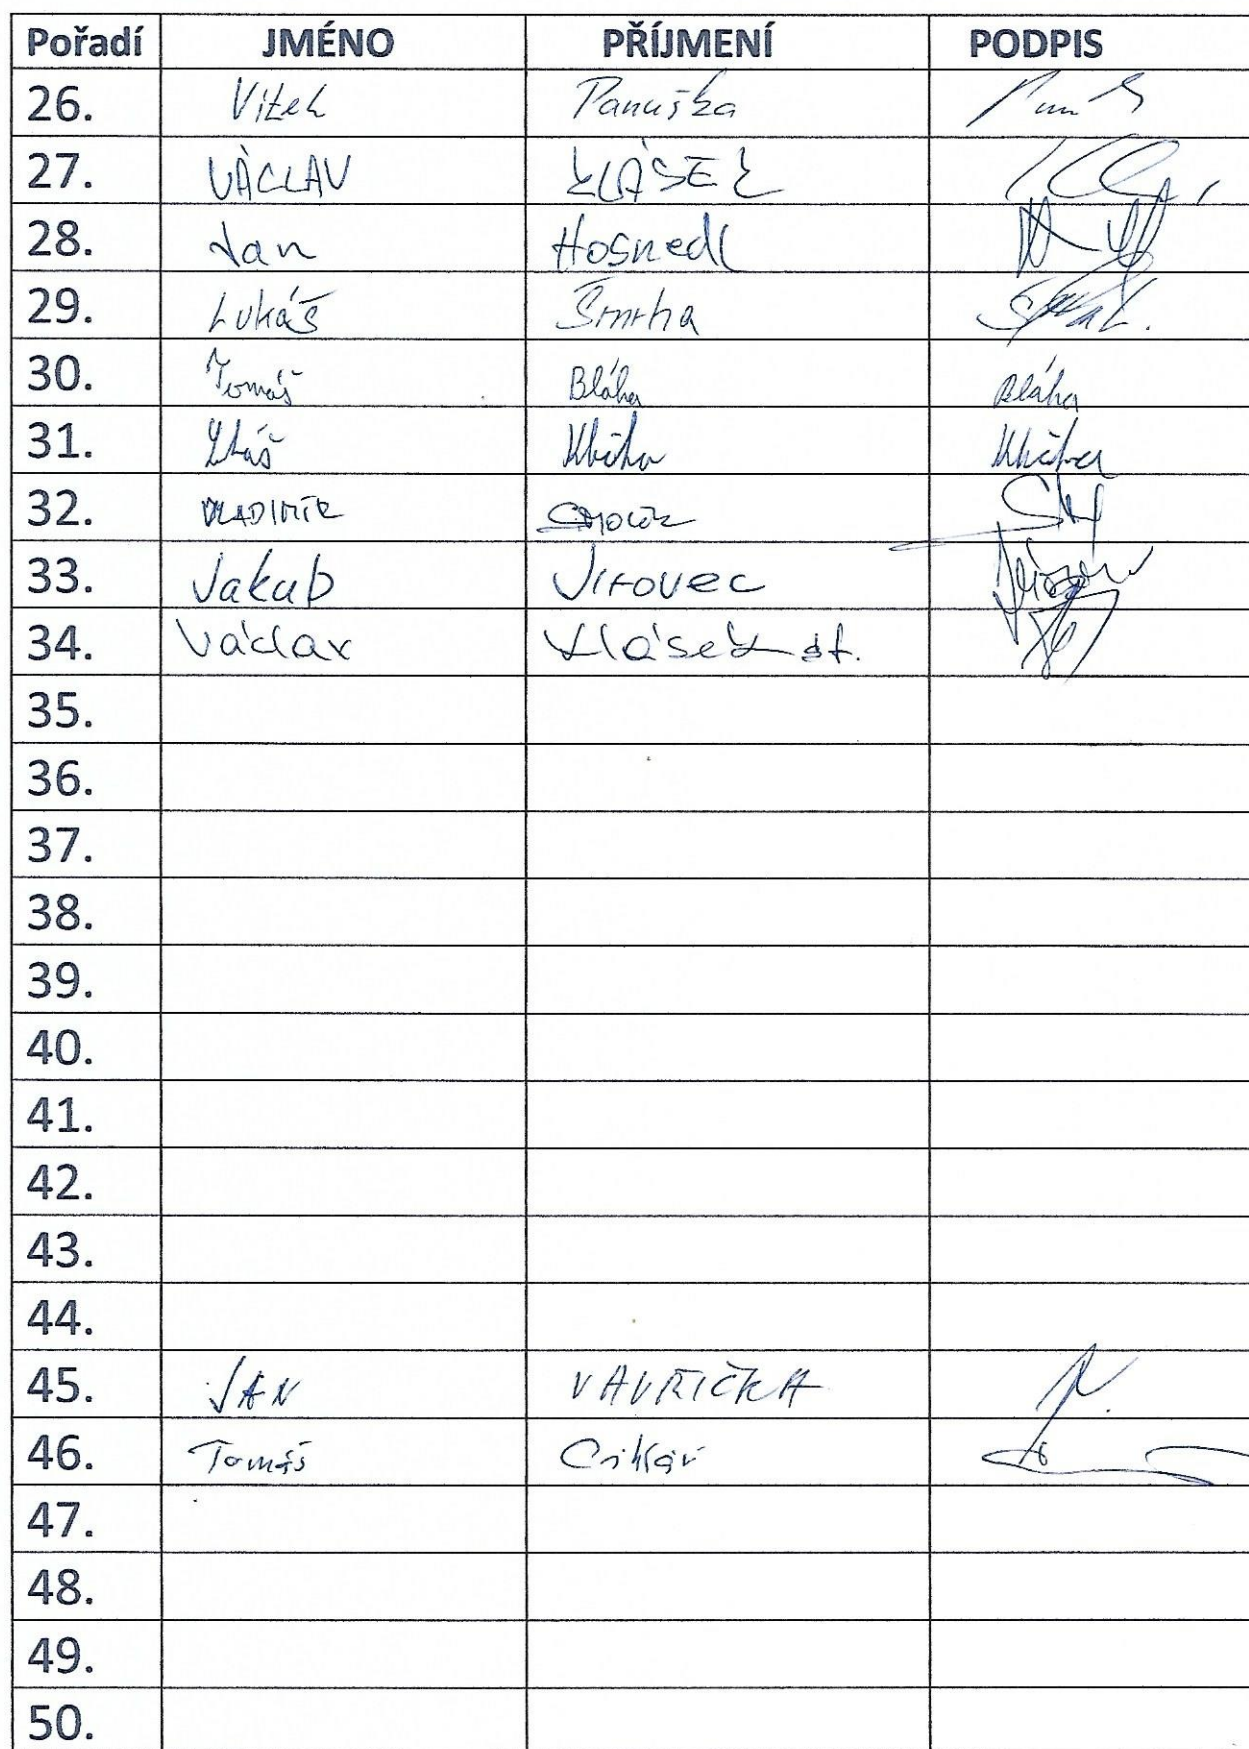 Pořadí JMÉNO PŘÍJMENÍ PODPIS
26. Vítek Panuška
27. VÁCLAV KLÁSEK
28. Jan Hosnedl
29. Lukáš Šmrha
30. Tomáš Bláha Bláha
31.
32. VLADIMÍR
33. Jakub Jirovec
34. Václav Klásek st.
35.
36.
37.
38.
39.
40.
41.
42.
43.
44.
45. JAN VAVŘIČKA
46. Tomáš
47.
48.
49.
50.